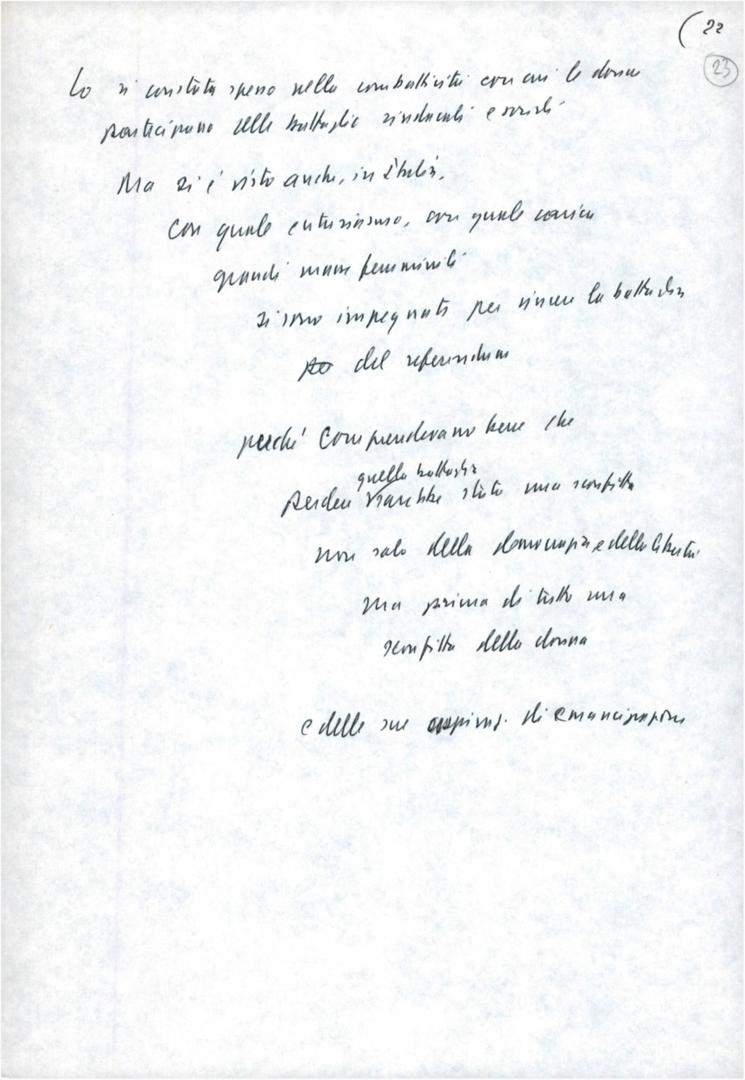 (22
23
Lo si constata spesso nella combattività con cui le donne
partecipano alle battaglie sindacali e sociali
Ma si è visto anche, in Italia,
con quale entusiasmo, con quale carica
grandi masse femminili
si sono impegnate per vincere la battaglia
del referendum
perché comprendevano bene che
quella battaglia
perdere sarebbe stata una sconfitta
non solo della democrazia e della libertà
ma prima di tutto una
sconfitta della donna
e delle sue aspiraz. di emancipazione